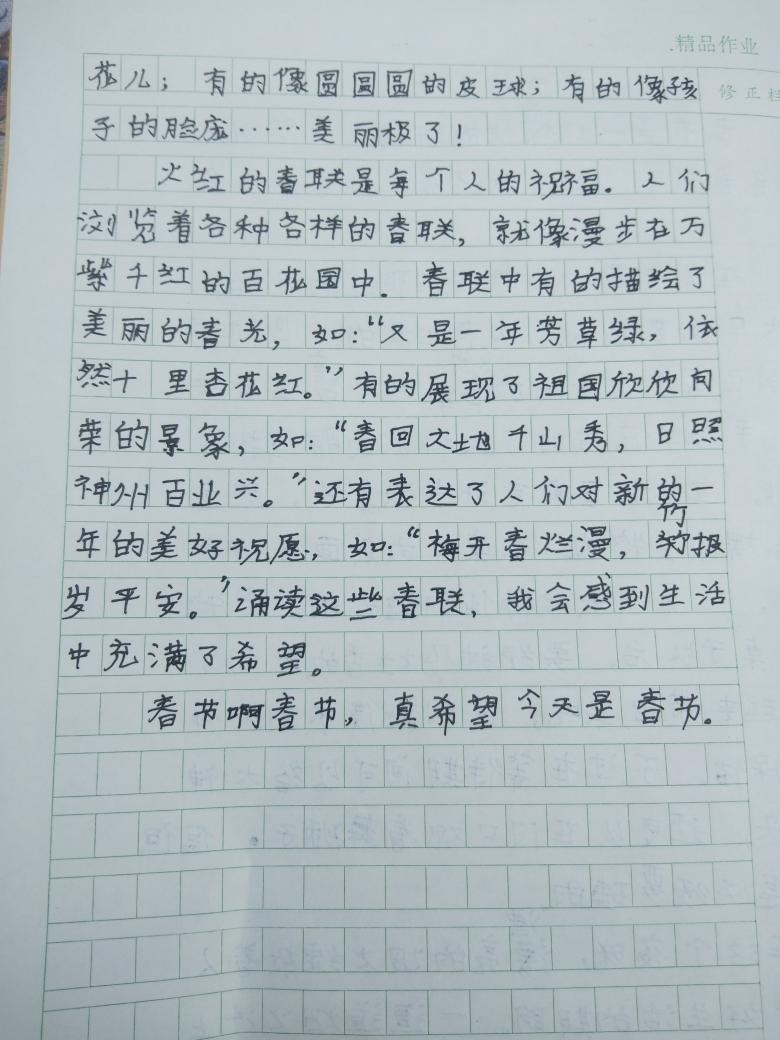 精品作业
修正栏
花儿；有的像圆圆圆的皮球；有的像孩
子的脸庞……美丽极了！
火红的春联是每个人的祝福．人们
浏览着各种各样的春联，就像漫步在万
紫千红的百花园中．春联中有的描绘了
美丽的春光，如：“又是一年芳草绿，依
然十里杏花红。”有的展现了祖国欣欣向
荣的景象，如：“春回大地千山秀，日照
神州百业兴。”还有表达了人们对新的一
年的美好祝愿，如：“梅开春烂漫，竹报
岁平安。”诵读这些春联，我会感到生活
中充满了希望。
春节啊春节，真希望今天是春节。